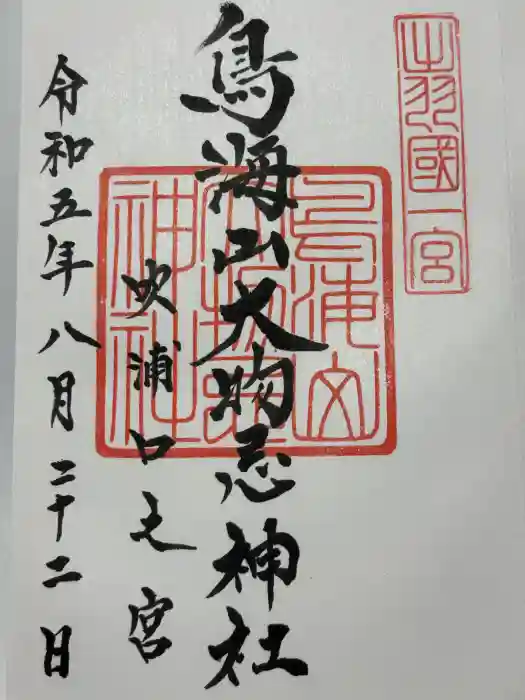 出羽國一宮
鳥海山大物忌神社
鳥海山大物忌神社
吹浦口之宮
令和五年八月二十二日